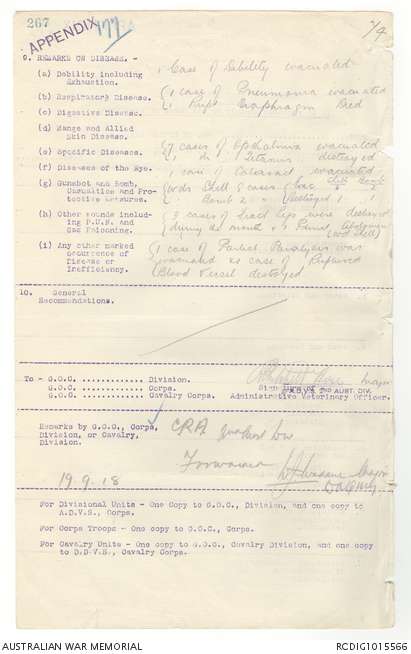 267
APPENDIX 177
2/4
9. REMARKS ON DISEASE. -
(a) Debility including Exhaustion.
1 Case of Debility evacuated
(b) Respiratory Disease.
1 case of Pneumonia evacuated
1 Rupt Diaphragm Died
(c) Digestive Disease.
(d) Mange and Allied Skin Disease.
(e) Specific Diseases.
7 cases of Ophthalmia evacuated
1 do Tetanus destroyed
(f) Diseases of the Eye.
1 case of Cataract evacuated
(g) Gunshot and Bomb, Casualties and Protective Measures.
Wds Shell 8 cases Evac
Bomb 2 " Destroyed 1
(h) Other wounds including P.U.N. and Gas Poisoning.
3 cases of Fract Legs were destroyed
during the month & 1 Punct Abdomen
(i) Any other marked occurrence of Disease or Inefficiency.
1 case of Partial Paralysis was
evacuated & 1 case of Ruptured
Blood Vessel destroyed
10. General Recommendations.
To - G.O.C. ............ Division.
G.O.C. ............ Corps.
G.O.C. ............ Cavalry Corps.
Major
2ND AUST. DIV.
Administrative Veterinary Officer.
Remarks by G.O.C., Corps, Division, or Cavalry, Division.
CRA 2nd Aust Div
Forwarded
Major
19-9-18
For Divisional Units - One Copy to G.O.C., Division, and one copy to
A.D.V.S., Corps.
For Corps Troops - One copy to G.O.C., Corps.
For Cavalry Units - One copy to G.O.C., Cavalry Division, and one copy
to D.D.V.S., Cavalry Corps.
AUSTRALIAN WAR MEMORIAL
RCDIG1015566